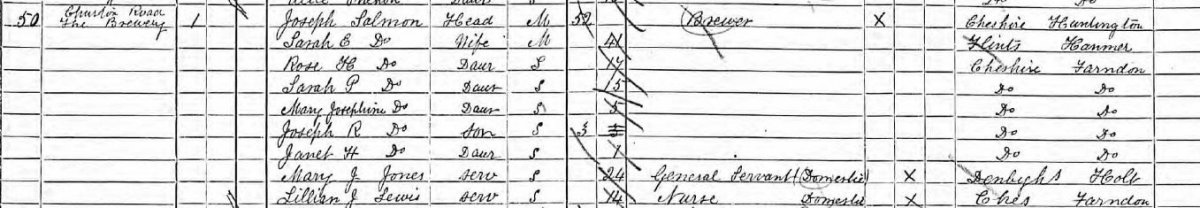 50 Churton Road The Brewery 1 Joseph Salmon Head M 52 Brewer X Cheshire Huntington
Sarah E Do Wife M 41 Flints Hanmer
Rose H Do Daur S 17 Cheshire Farndon
Sarah P Do Daur S 15 Do Do
Mary Josephine Do Daur S 5 Do Do
Joseph R Do Son S 3 Do Do
Janet H Do Daur S 1 Do Do
Mary J Jones Serv S 24 General Servant (Domestic) X Denbighs Holt
Lillian J Lewis Serv S 14 Nurse Domestic X Ches Farndon